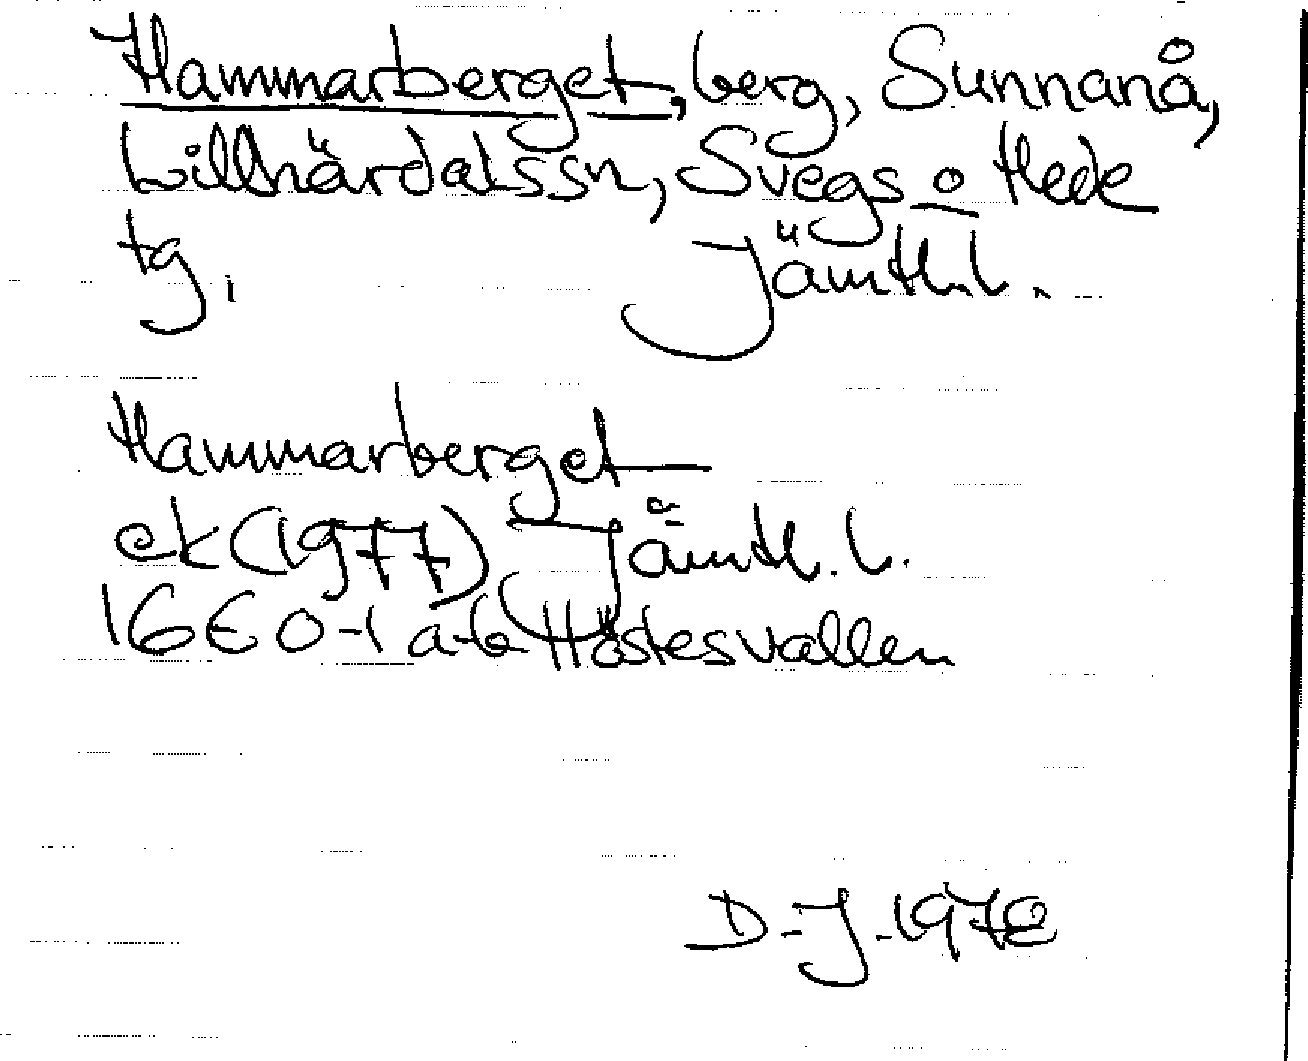 Hammarberget, berg, Sunnanå,
Lillhärdalssn, Svegs o Hede
tg, Jämtl.l.
Hammarberget
ek (1977) Jämtl. l.
16E 0-1 a-b Höstesvallen
D-J-1978